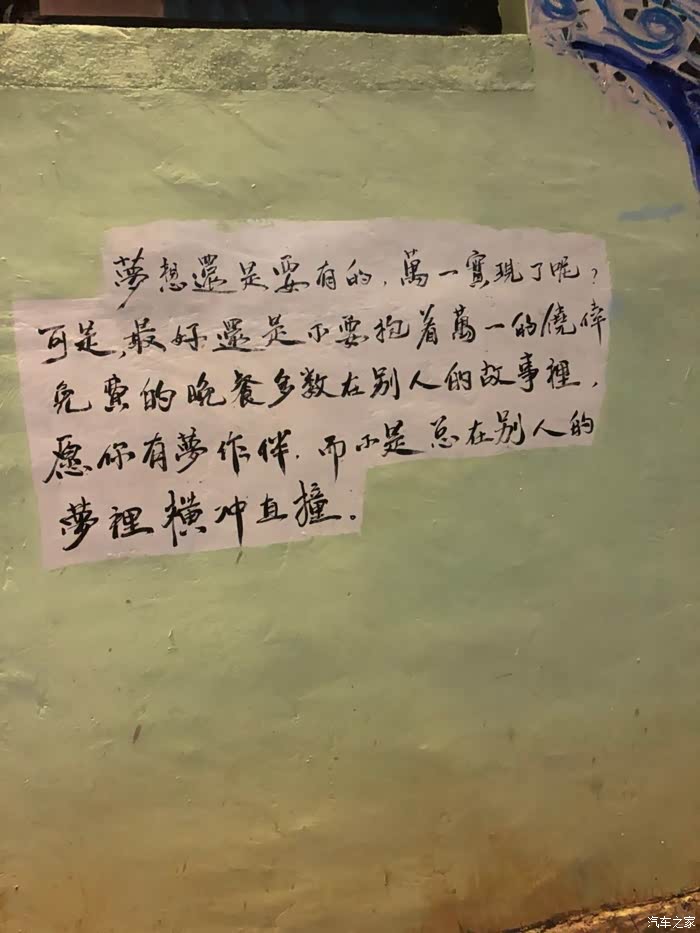 夢想還是要有的，萬一實現了呢？
可是，最好還是不要抱着萬一的僥倖
免費的晚餐多数在别人的故事裡，
愿你有夢作伴，而不是总在别人的
夢裡横冲直撞。
汽车之家